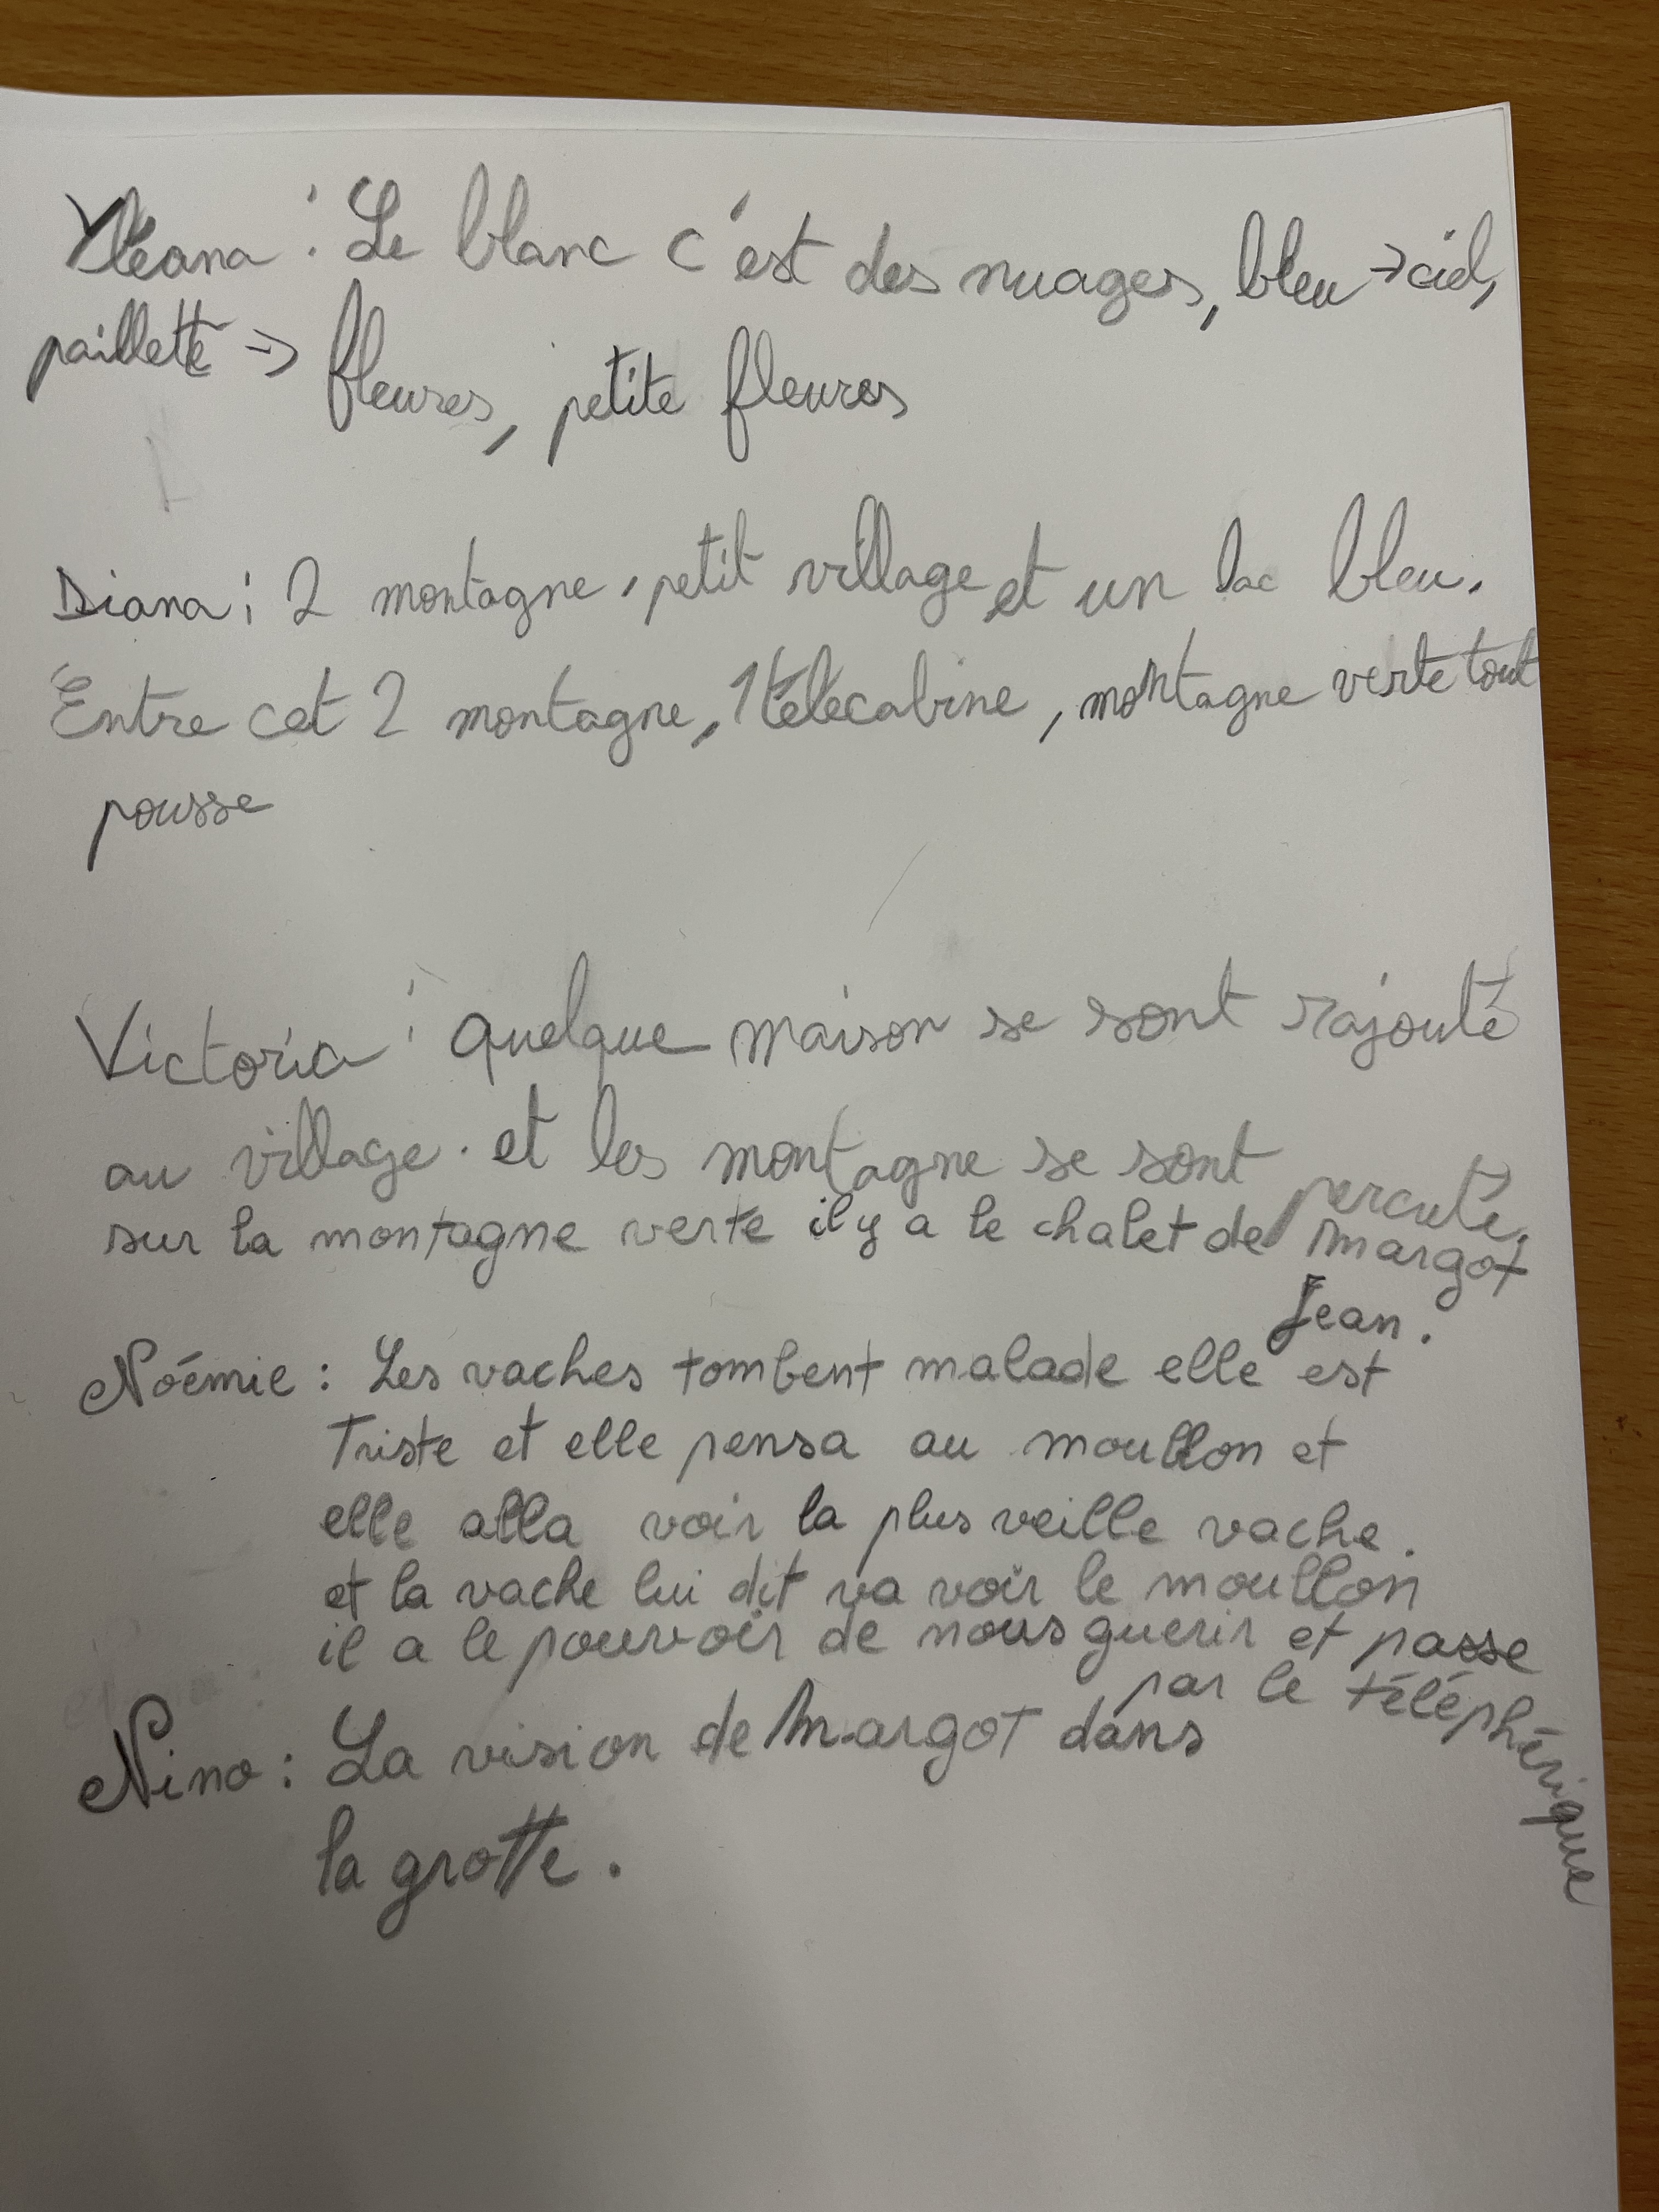 Yléana : Le blanc c'est des nuages, bleu → ciel,
paillette → fleures, petite fleures
Diana : 2 montagne, petit village et un lac bleu.
Entre cet 2 montagne, 1 télécabine, montagne verte tout
pousse
Victoria : quelque maison se sont rajouté
au village. et les montagne se sont percuté.
sur la montagne verte il y a le chalet de Margot
Jean.
Noémie : Les vaches tombent malade elle est
Triste et elle pensa au moullon et
elle alla voir la plus veille vache.
et la vache lui dit va voir le moullon
il a le pouvoir de nous guerir et passe
par le téléphérique
Nino : La vision de Margot dans
la grotte.